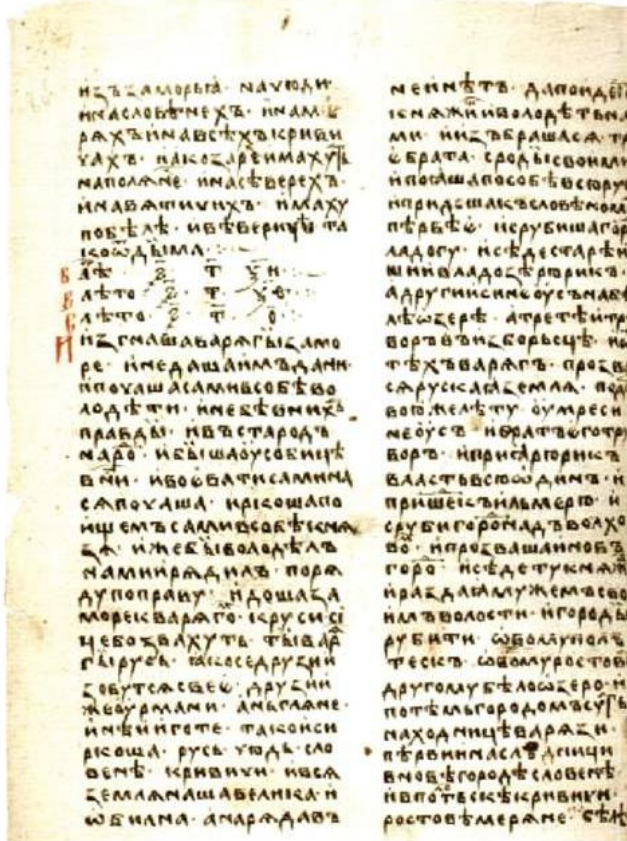 изъзаморьꙗ · начюди
инасловѣнехъ · инамѣ
ряхъ инавсѣхъкриви
чахъ · накозарѣимахуть
наполѧне · инасѣверехъ ·
инавѧтичихъ · имаху
побѣлѣ · ивѣверицѣ та
коѿдыма ·
В лѣ · ҂ѕ҃ · т҃ · з҃і ·
В лѣто · ҂ѕ҃ · т҃ · ѳ҃ ·
В лѣто · ҂ѕ҃ · т҃ · о҃ ·
Изгнашаварѧгызамо
ре · инедашаимъдани ·
ипочашасамивсобѣво
лодѣти · инебѣвнихъ
правды · ивъстародъ
народ · ибышаоусобицѣ
вни · ивоеватисамина
сѧпочаша · ирѣкошапо
ищемъсамивсобѣкнѧ
зѧ · ижебыволодѣлъ
намиирѧдилъ · порѧ
дупоправу · идошаза
морекварѧго · круси сі
цебозвахуть · тыварѧ
гырусь · ꙗкоседрузии
зовутсѧсвее · друзии
жеоурмани · аньглѧне ·
инѣииготе · такоиси
ркоша · русь · чюдь · сло
венѣ · кривичи · ивсѧ
землѧнашавелика · и
ѡбилна · анарѧдавъ
неинѣтъ · дапоидѣте
кнѧжииволодѣтьна
ми · иизъбрашасѧ · т
ебрата · сродысвоими
ипоꙗшапособѣвсюрусь
ипридошакъсловѣномъ
пѣрвѣе · исрубишагор
ладогу · иседестарѣи
шиивладозѣрюрикъ ·
адругиисинеоусънабѣ
лѣѡзерѣ · атретѣитру
воръвъизборьсцѣ · и
тѣхъварѧгъ · прозва
сѧрускаꙗземлѧ · 
воюжелѣту · оумреси
неоусъ · ибратъеготру
воръ · иприꙗрюрикъ
властьвсюѡдинъ · и
пришеикъильмерю · и
срубигороднадъволхо
во · ипрозвашаиновъ
горо · иседетукнѧжѧ
ираздаꙗмужемъсво
имъволости · игороды
рубити · ѡвомуполъ
тескъ · ѡвомуростовъ
другомубѣлоѡзеро · и
потѣмьгородомъсуть
находницѣварѧзи ·
пѣрвиинаслѣдници
вновѣгородѣсловенѣ
ивполотьскѣкривичи ·
ростовѣмерѧне ·